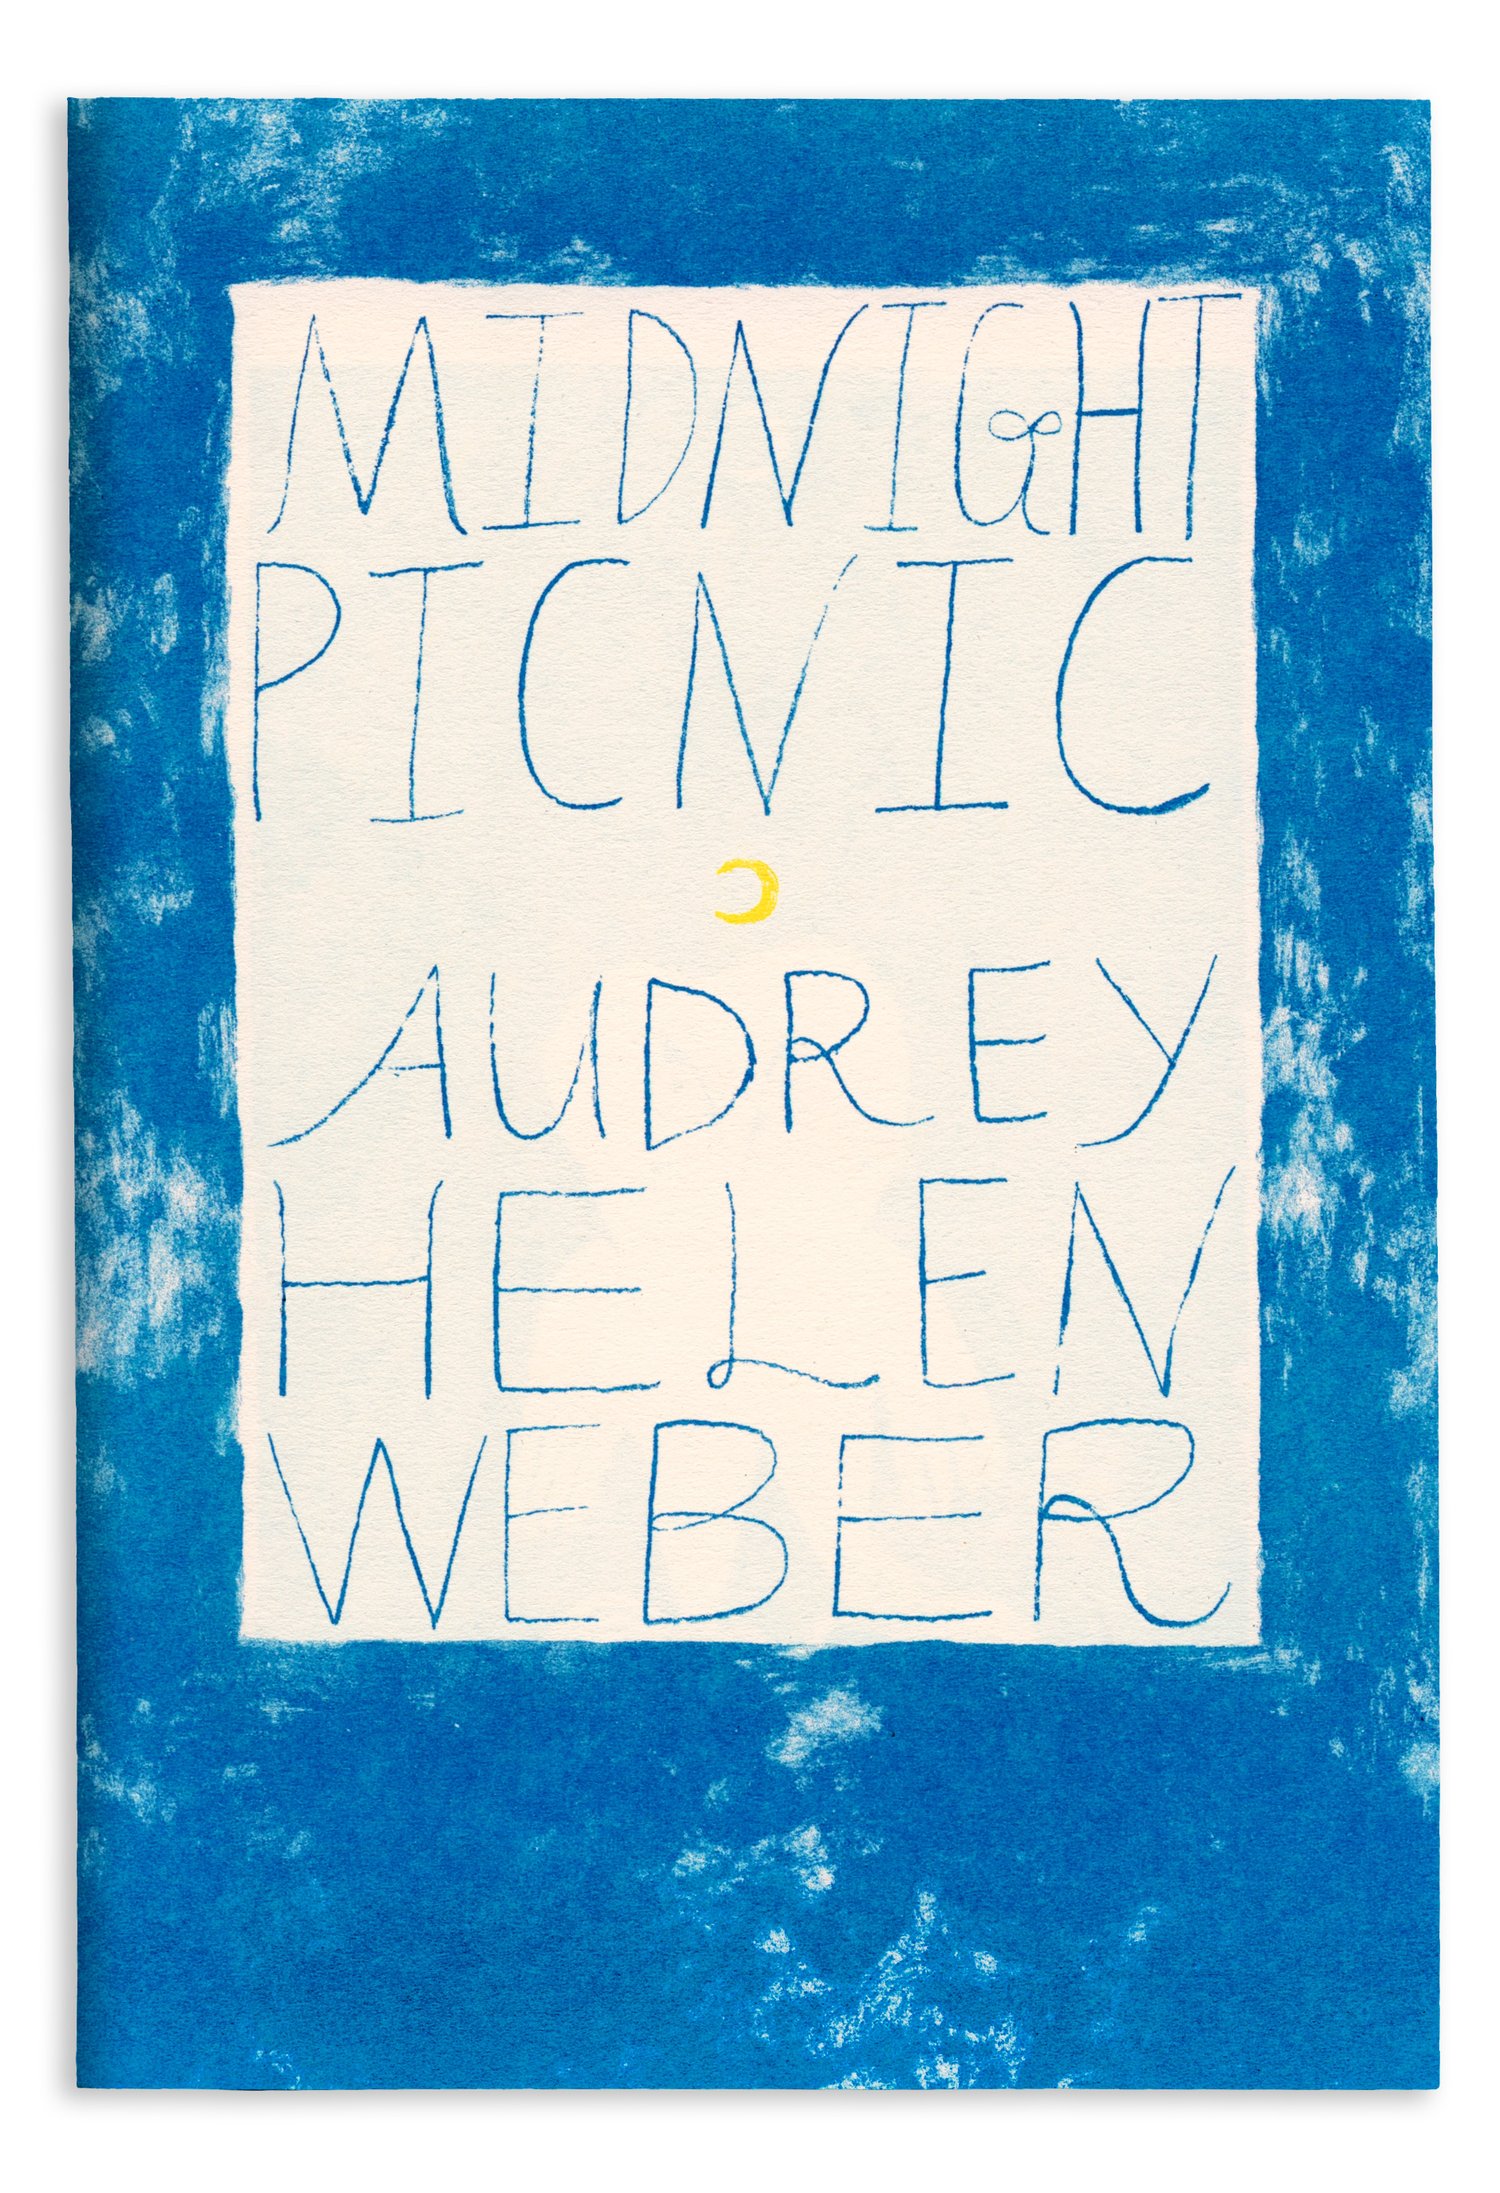 MIDNIGHT
PICNIC
AUDREY
HELEN
WEBER